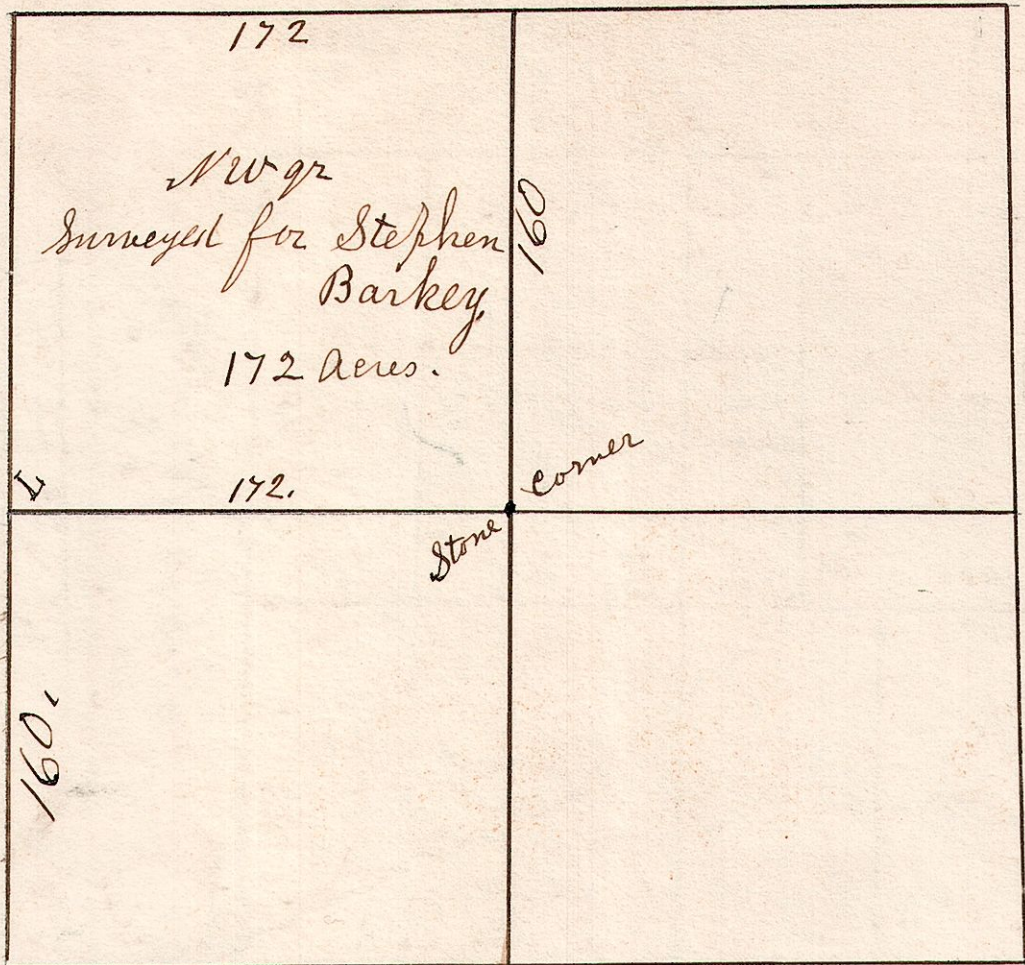 172
NW qr
Surveyed for Stephen
Barkey,
172 Acres.
160
172.
L
Stone Corner
160.